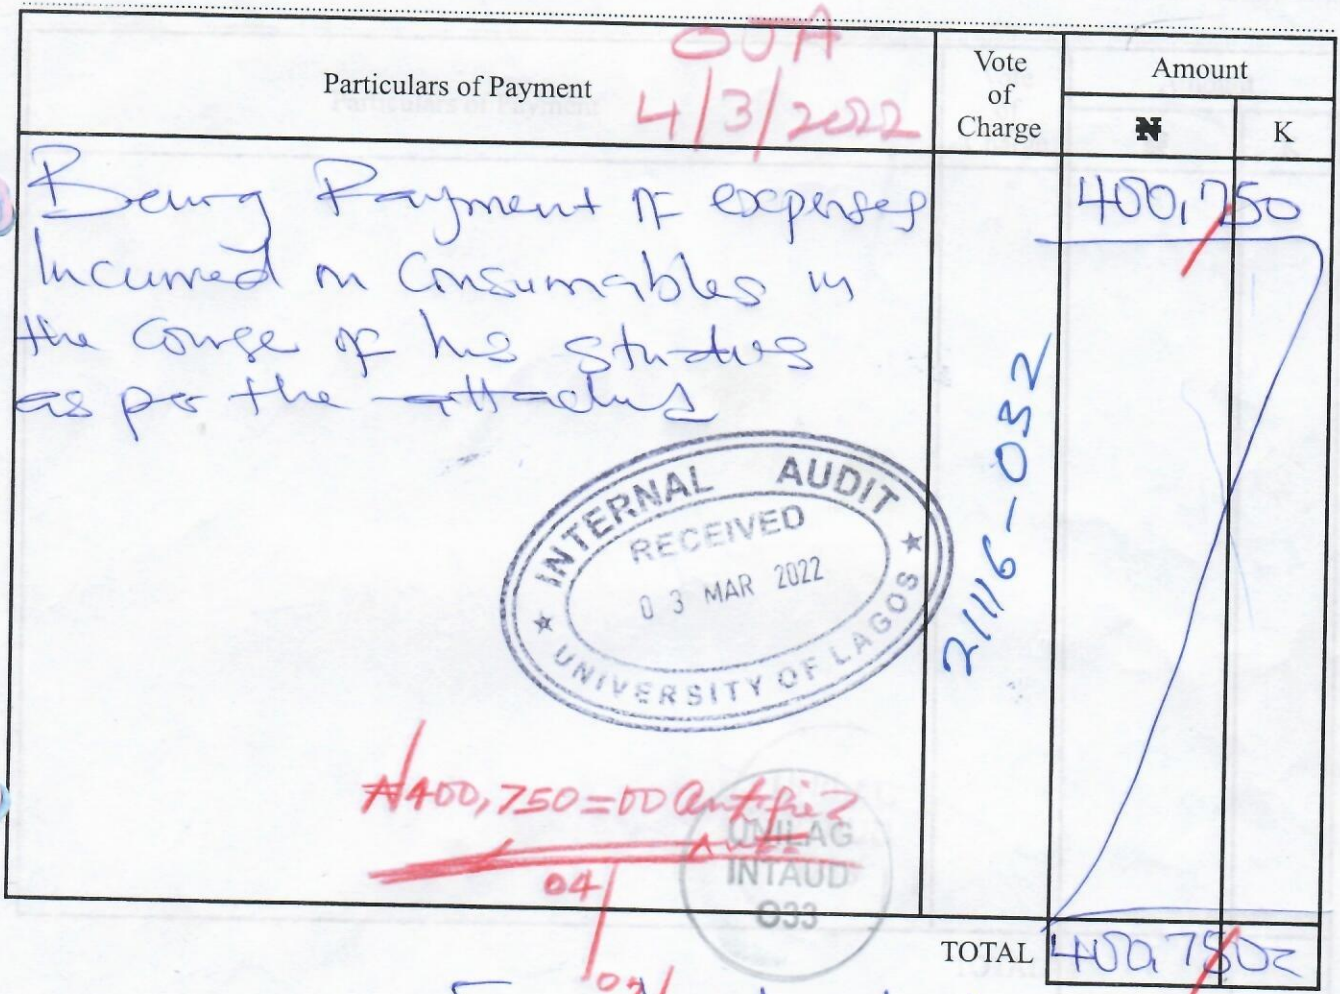 OJA
4/3/2022
Particulars of Payment
Vote
of
Charge
Amount
₦
K
Being Payment of expenses
Incurred on Consumables in
the course of his studies
as per the attached
400,750
21116-032
INTERNAL AUDIT
RECEIVED
03 MAR 2022
UNIVERSITY OF LAGOS
₦400,750=00 Certified
UNILAG
INTAUD
033
04
TOTAL
400,750=